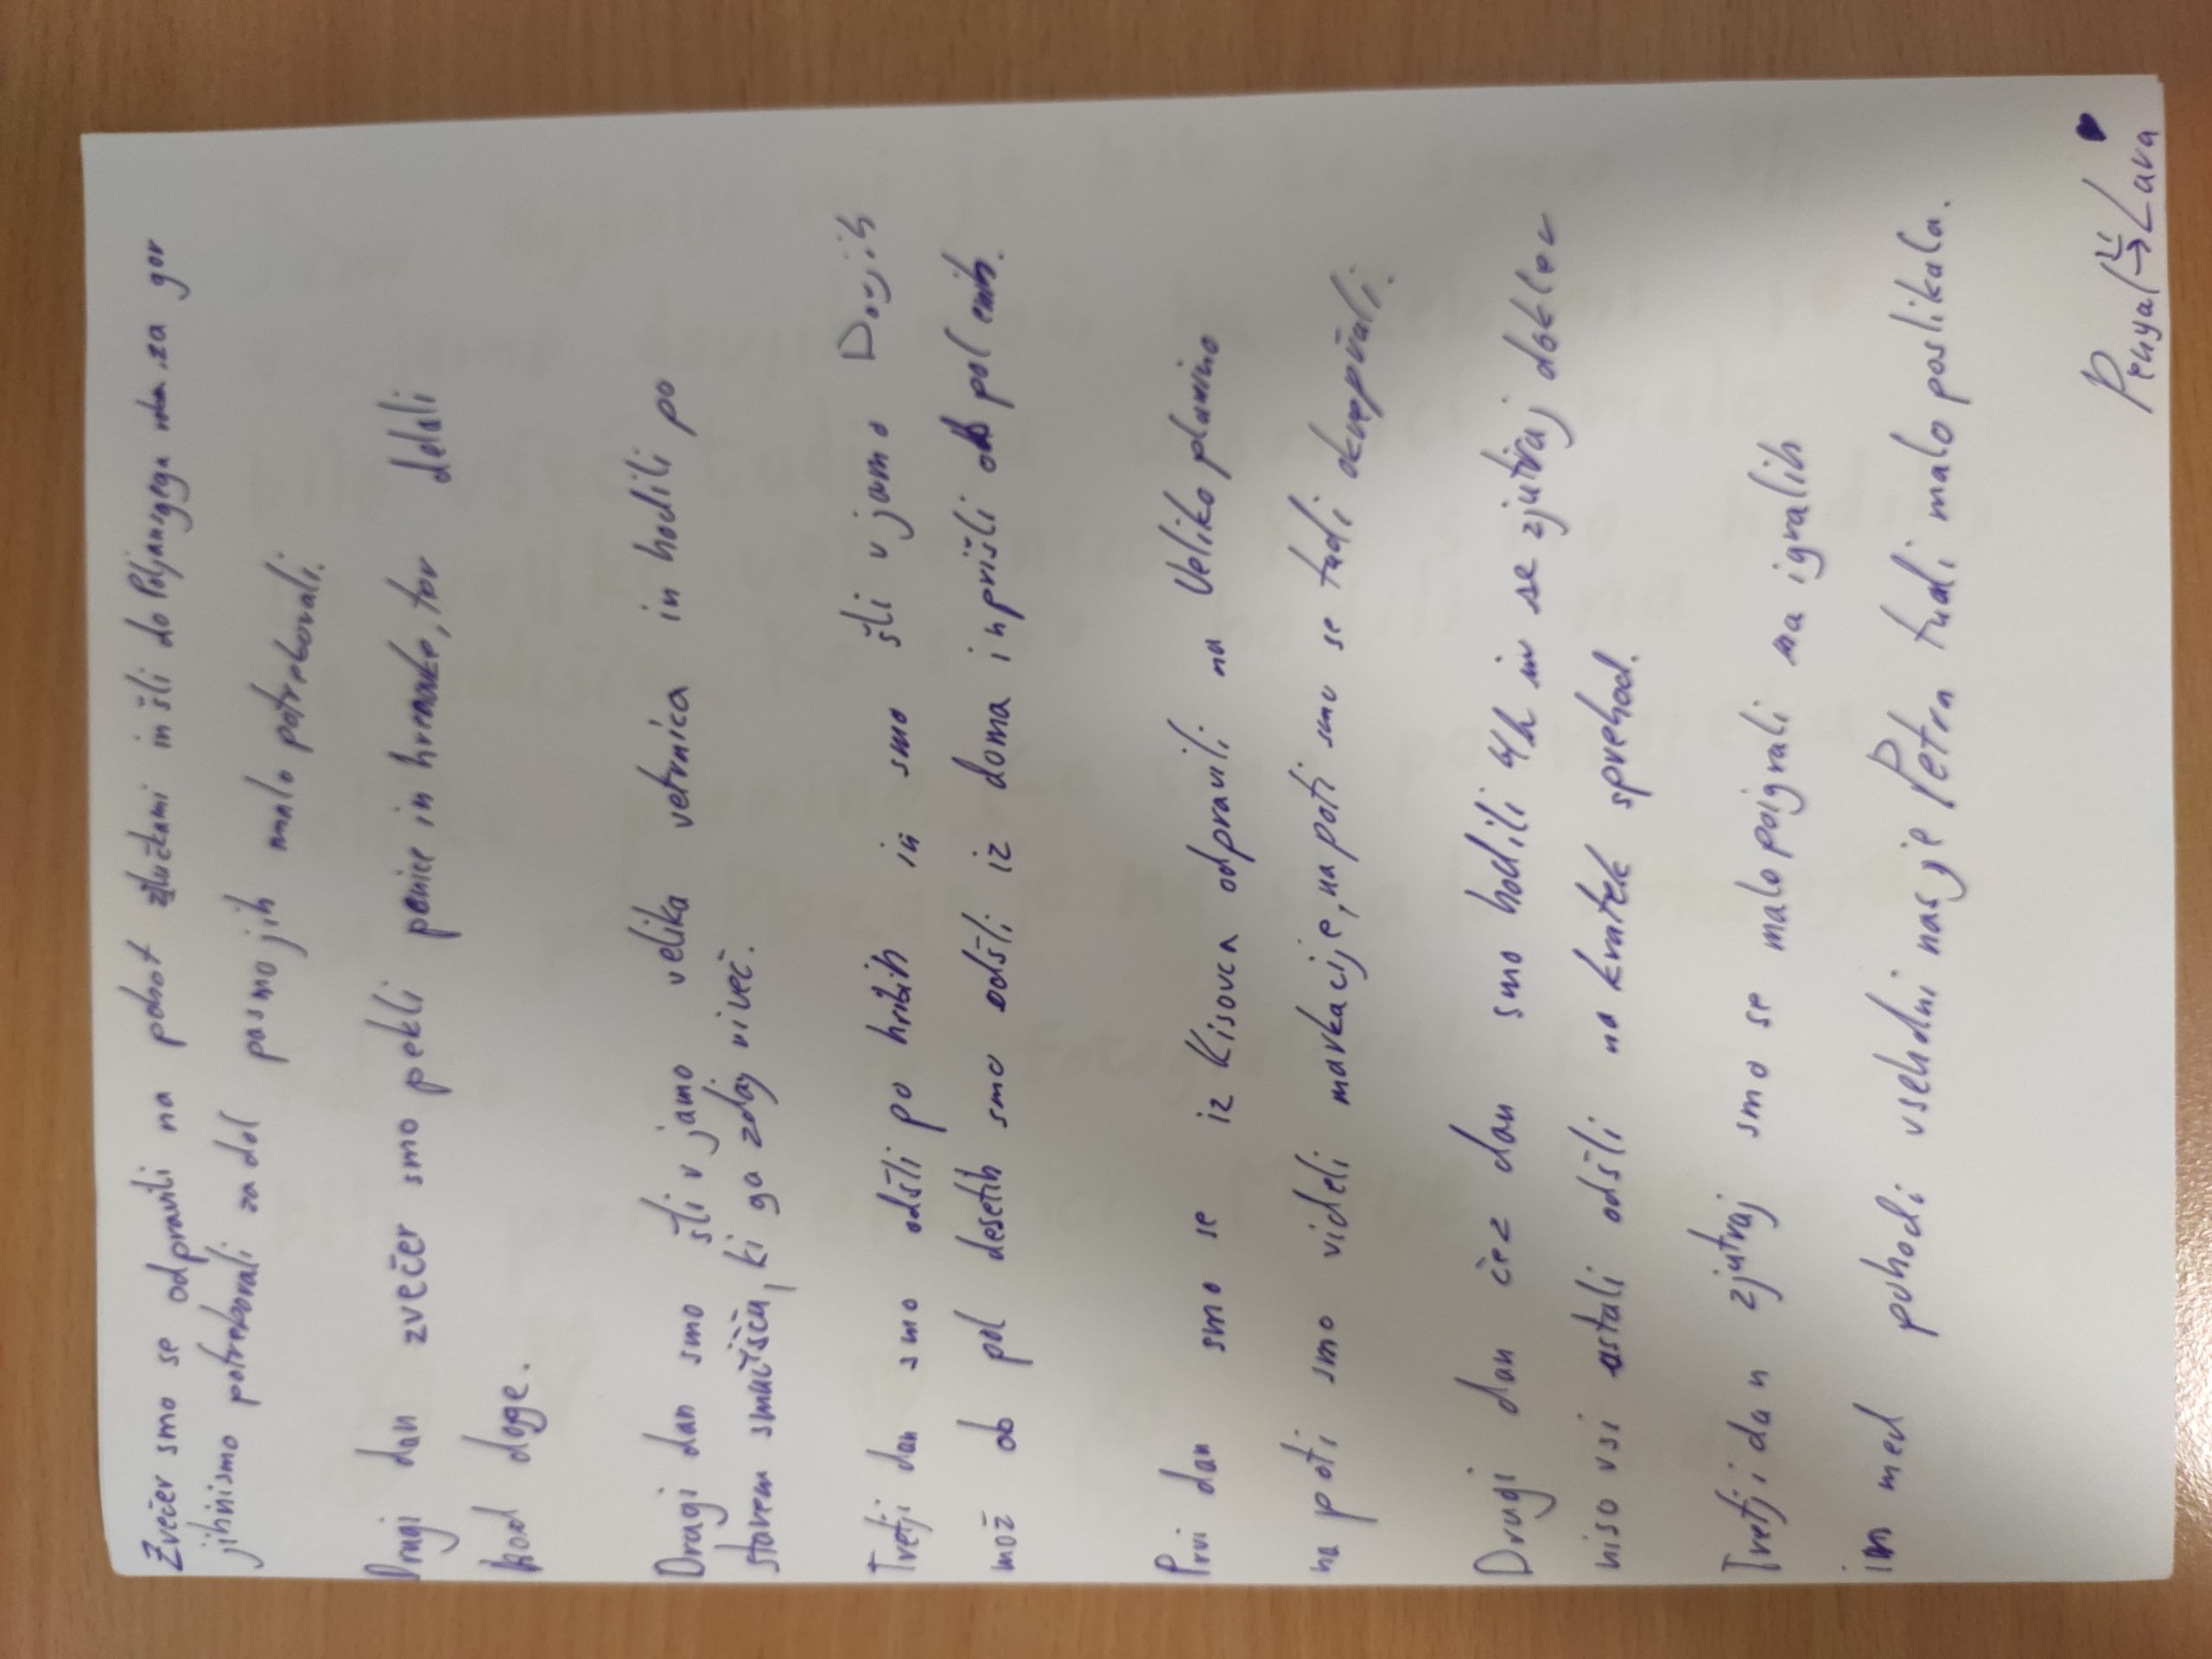 Zvečer smo se odpravili na pohot zlučkami in šli do Poljanskega za gor
jihnismo potrebovali za dol pasmo jih malo potrebovali.
Drugi dan zvečer smo pekli penice in hrenovke, tor delali
hod doge.
Drugi dan smo šli v jamo velika vetrnica in hodili po
starem smučišču, ki ga zdaj ni več.
Tretji dan smo odšli po hribih in smo šli v jamo
mož ob pol desetih smo odšli iz doma in prišli ob pol enih.
Prvi dan smo se iz Kisovca odpravili na Veliko planino
na poti smo videli markacije, na poti smo se tudi okrepčali.
Drugi dan čez dan smo hodili 4h in se zjutraj dokler
niso vsi ustali odšli na kratek sprehod.
Tretji dan zjutraj smo se malo poigrali na igralih
in med puhodi vsehdni nas je Petra tudi malo poslikala.
Lara